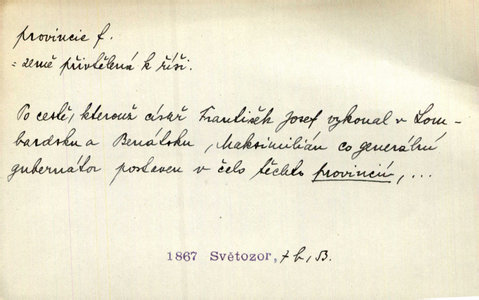 provincie f.
= země přivtělená k říši.
Po cestě, kterouž císař František Josef vykonal v Lom-
bardsku a Benátsku, Maksimilián co generální
gubernátor postaven v čelo těchto provincií, ...
1867 Světozor,